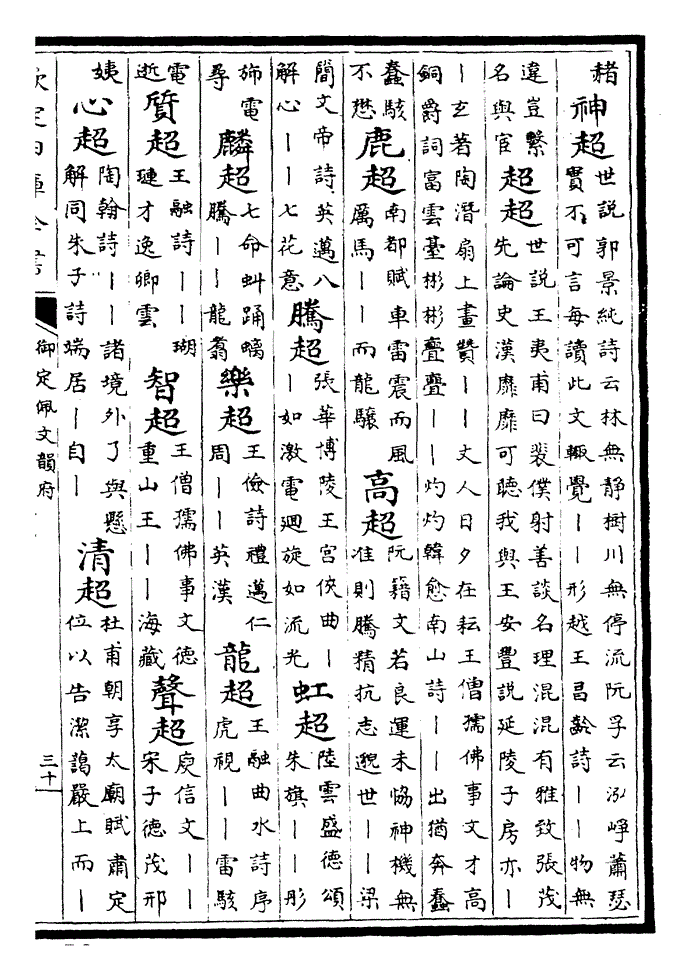 赭神超世說郭景純詩云林無静樹川無停流阮孚云泓崢蕭瑟
實不可言每讀此文輙覺丨丨形越王昌齡詩丨丨物無
違豈繫
名與宦超超世說王夷甫曰裴僕射善談名理混混有雅致張茂
先論史漢靡靡可聽我與王安豐説延陵子房亦丨
丨玄著陶潛扇上畫贊丨丨丈人日夕在耘王僧孺佛事文才高
銅爵詞富雲臺彬彬亹亹丨丨灼灼韓愈南山詩丨丨出猶奔蠢
蠢駭
不懋鹿超南都賦車雷震而風
厲馬丨丨而龍驤
高超阮籍文若良運未協神機無
准則騰精抗志邈世丨丨梁
簡文帝詩英邁八
解心丨丨七花意
騰超張華博陵王宮俠曲丨
丨如激電廻旋如流光
虹超陸雲盛德頌
朱旗丨丨彤
斾電
尋麟超七命虯踊螭
騰丨丨龍翥
樂超王儉詩禮邁仁
周丨丨英漢
龍超王融曲水詩序
虎視丨丨雷駭
電
逝質超王融詩丨丨瑚
璉才逸卿雲
智超王僧孺佛事文德
重山王丨丨海藏
聲超庾信文丨丨
宋子德茂邢
姨心超陶翰詩丨丨諸境外了與懸
解同朱子詩端居丨自丨
清超杜甫朝享太廟賦肅定
位以告潔藹嚴上而丨
欽定四庫全書
御定佩文韻府
三十